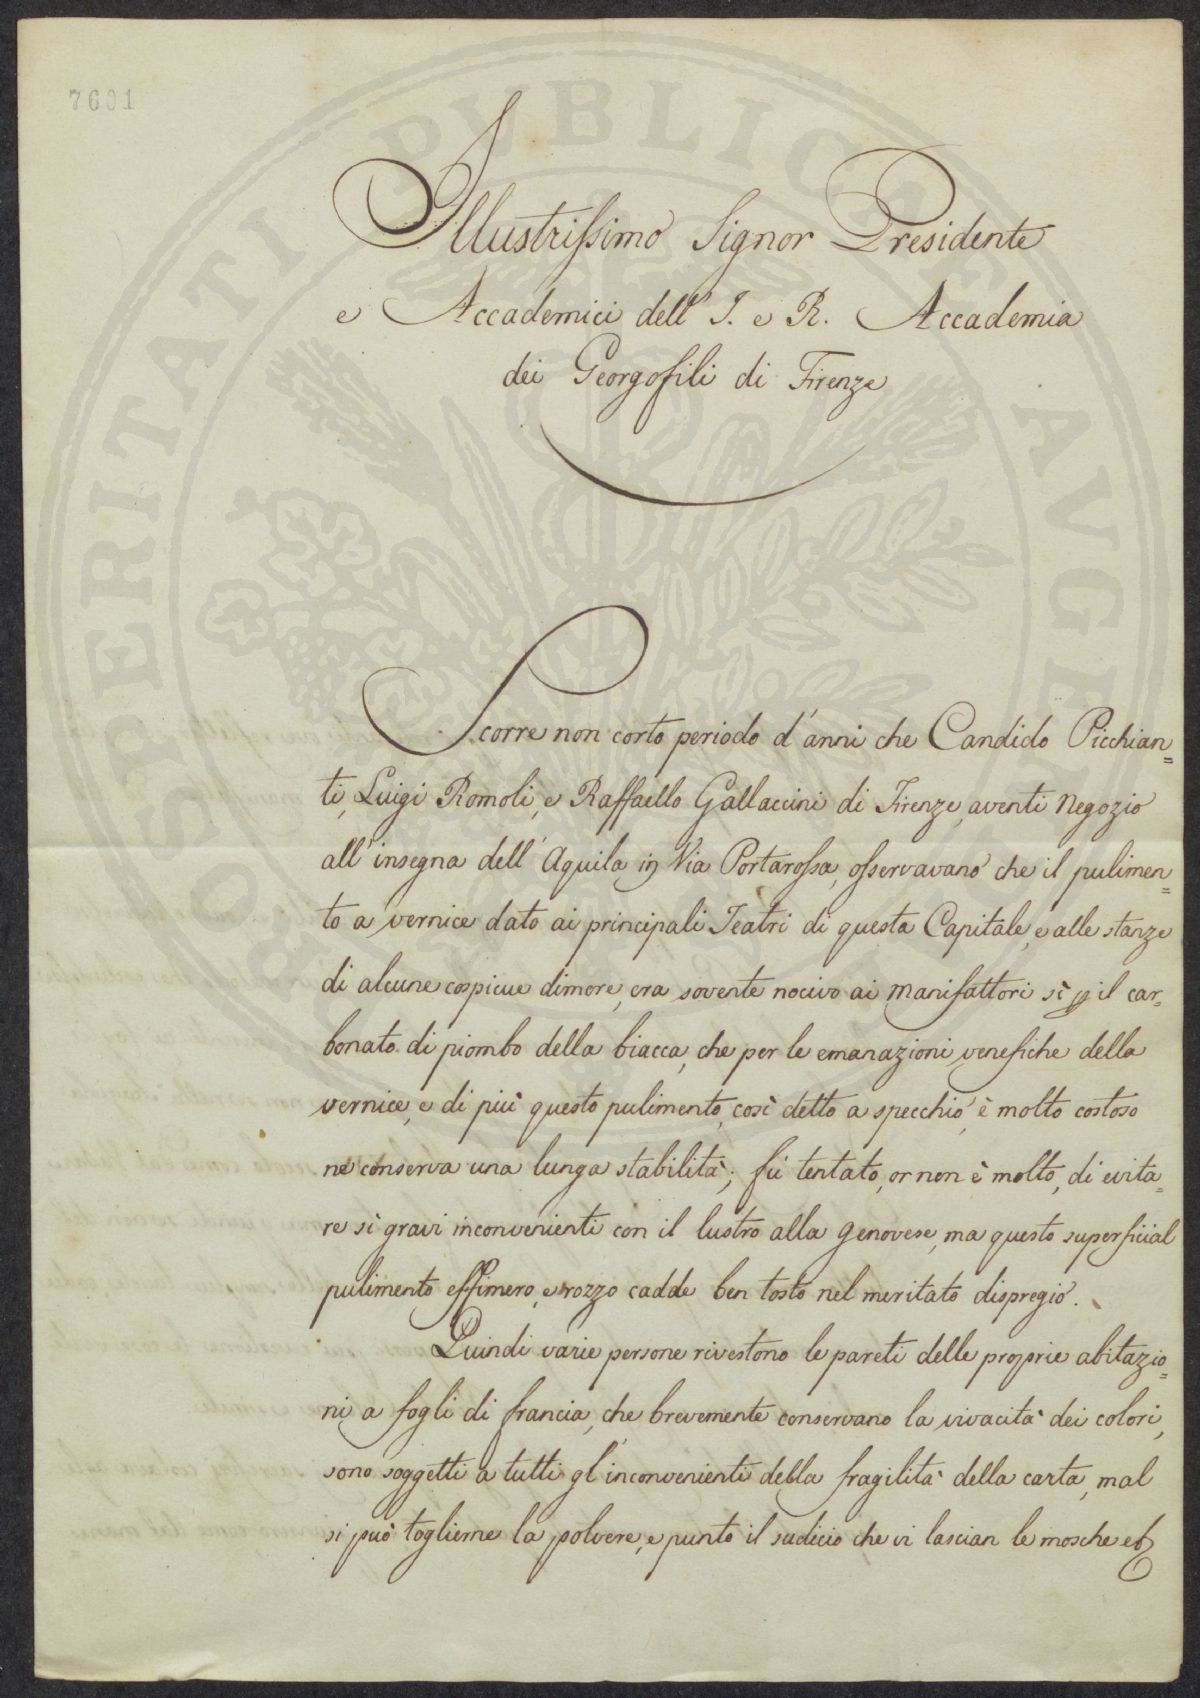 7601
Illustrissimo Signor Presidente
e Accademici dell' I. e R. Accademia
dei Georgofili di Firenze
Scorre non corto periodo d'anni che Candido Picchian=
ti, Luigi Romoli, e Raffaello Gallaccini di Firenze, aventi Negozio
all'insegna dell'Aquila in Via Portarossa, osservavano che il pulimen=
to a vernice dato ai principali Teatri di questa Capitale, e alle stanze
di alcune cospicue dimore, era sovente nocivo ai manifattori sì il car=
bonato di piombo della biacca, che per le emanazioni venefiche della
vernice, e di più questo pulimento, così detto a specchio, è molto costoso
ne conserva una lunga stabilità; fù tentato, or non è molto, di evita=
re sì gravi inconvenienti con il lustro alla genovese, ma questo superficial
pulimento effimero, e rozzo cadde ben tosto nel meritato dispregio.
Quindi varie persone rivestono le pareti delle proprie abitazio=
ni a fogli di francia, che brevemente conservano la vivacità dei colori,
sono soggetti a tutti gl'inconvenienti della fragilità della carta, mal
si può toglierne la polvere, e punto il sudicio che vi lascian le mosche
PROSPERITATI PVBLICAE AVGENDAE